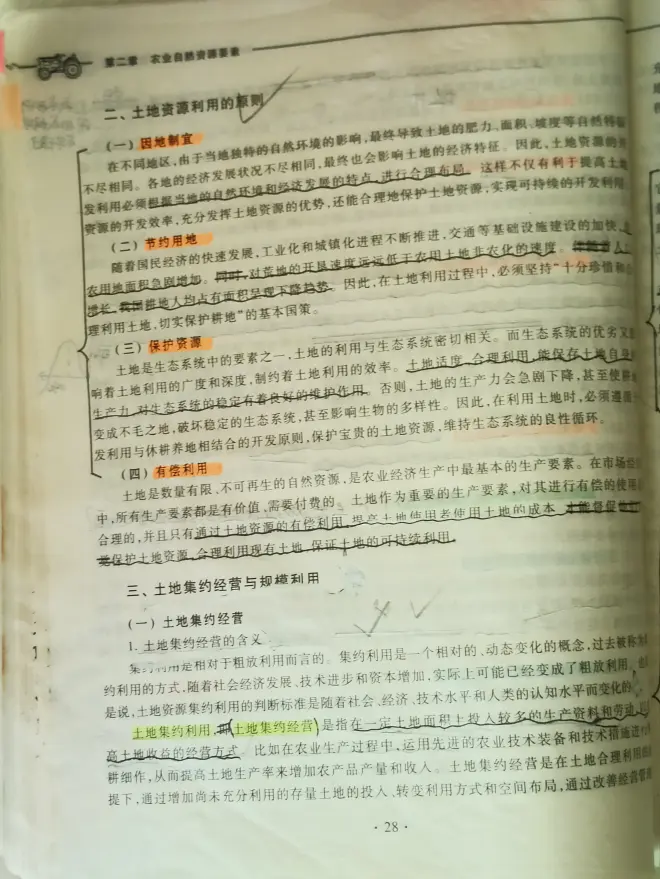 第二章 农业自然资源要素
二、土地资源利用的原则
（一）因地制宜
在不同地区,由于当地独特的自然环境的影响,最终导致土地的肥力、面积、坡度等自然特征
不尽相同。各地的经济发展状况不尽相同,最终也会影响土地的经济特征。因此,土地资源的开
发利用必须根据当地的自然环境和经济发展的特点,进行合理布局。这样不仅有利于提高土地
资源的开发效率,充分发挥土地资源的优势,还能合理地保护土地资源,实现可持续的开发利用。
（二）节约用地
随着国民经济的快速发展,工业化和城镇化进程不断推进,交通等基础设施建设的加快,
农用地面积急剧增加。同时,对荒地的开垦速度远远低于农用土地非农化的速度。伴随着人
增长,我国耕地人均占有面积呈现下降趋势。因此,在土地利用过程中,必须坚持“十分珍惜和
理利用土地,切实保护耕地”的基本国策。
（三）保护资源
土地是生态系统中的要素之一,土地的利用与生态系统密切相关。而生态系统的优劣又
响着土地利用的广度和深度,制约着土地利用的效率。土地适度、合理利用,能保存土地自
生产力,对生态系统的稳定有着良好的维护作用。否则,土地的生产力会急剧下降,甚至使耕
变成不毛之地,破坏稳定的生态系统,甚至影响生物的多样性。因此,在利用土地时,必须遵
发利用与休耕养地相结合的开发原则,保护宝贵的土地资源,维持生态系统的良性循环。
（四）有偿利用
土地是数量有限、不可再生的自然资源,是农业经济生产中最基本的生产要素。在市场经
中,所有生产要素都是有价值,需要付费的。土地作为重要的生产要素,对其进行有偿的使用
合理的,并且只有通过土地资源的有偿利用,提高土地使用者使用土地的成本,才能督促
保护土地资源,合理利用现有土地,保证土地的可持续利用。
三、土地集约经营与规模利用
（一）土地集约经营
1. 土地集约经营的含义
集约利用是相对于粗放利用而言的。集约利用是一个相对的、动态变化的概念,过去被称为
约利用的方式,随着社会经济发展、技术进步和资本增加,实际上可能已经变成了粗放利用。也
是说,土地资源集约利用的判断标准是随着社会、经济、技术水平和人类的认知水平而变化的
土地集约利用,即(土地集约经营)是指在一定土地面积上投入较多的生产资料和劳动,
高土地收益的经营方式。比如在农业生产过程中,运用先进的农业技术装备和技术措施进行
耕细作,从而提高土地生产率来增加农产品产量和收入。土地集约经营是在土地合理利用的
提下,通过增加尚未充分利用的存量土地的投入、转变利用方式和空间布局,通过改善经营管
· 28 ·